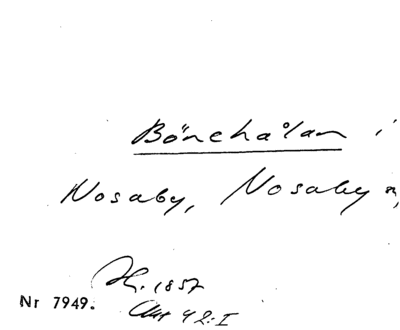 Bönehålan i
Nosaby, Nosaby
1857
Nr 7949.
42:I